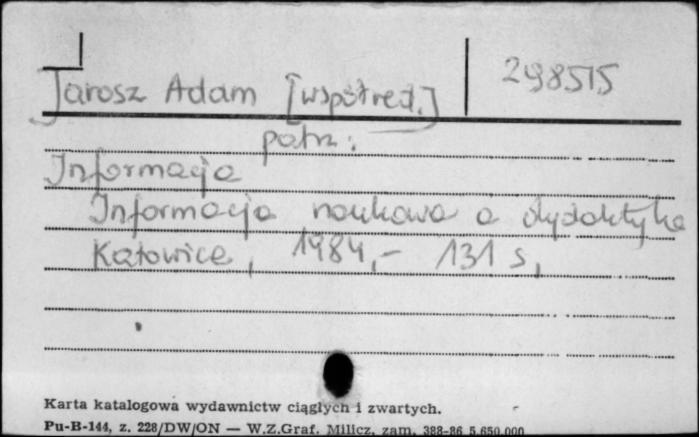 Jarosz Adam [współred.] 298515
patrz:
Informacja
Informacja naukowa a dydaktyka
Katowice, 1984,- 131 s,
Karta katalogowa wydawnictw ciągłych i zwartych.
Pu-B-144, z. 228/DW/ON — W.Z.Graf. Milicz, zam. 388-86 5.650.000